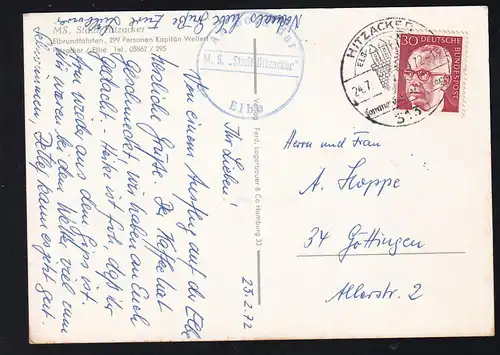 Nochmals liebe Grüße Eure
MS. Stadt Hitzacker
Elbrundfahrten, 299 Personen Kapitän Wellert
Hitzacker / Elbe Tel. 05862 / 295
M. S. „Stadt Hitzacker"
Elbe
Ihr Lieben!
Von einem Ausflug auf der Elbe
herzliche Grüße. Der Kaffee hat
geschmeckt, wir haben an Euch
gedacht. Heike ist froh, daß ihr
Arm wieder aus dem Gips ist.
Wir waren bei dem Wetter viel zum
Schwimmen, Detlef kann es jetzt gut.
Verlag Ferd. Lagerbauer & Co Hamburg 33
23.7.72
HITZACKER
24.7.
30 DEUTSCHE BUNDESPOST
Herrn und Frau
A. Hoppe
34 Göttingen
Allerstr. 2